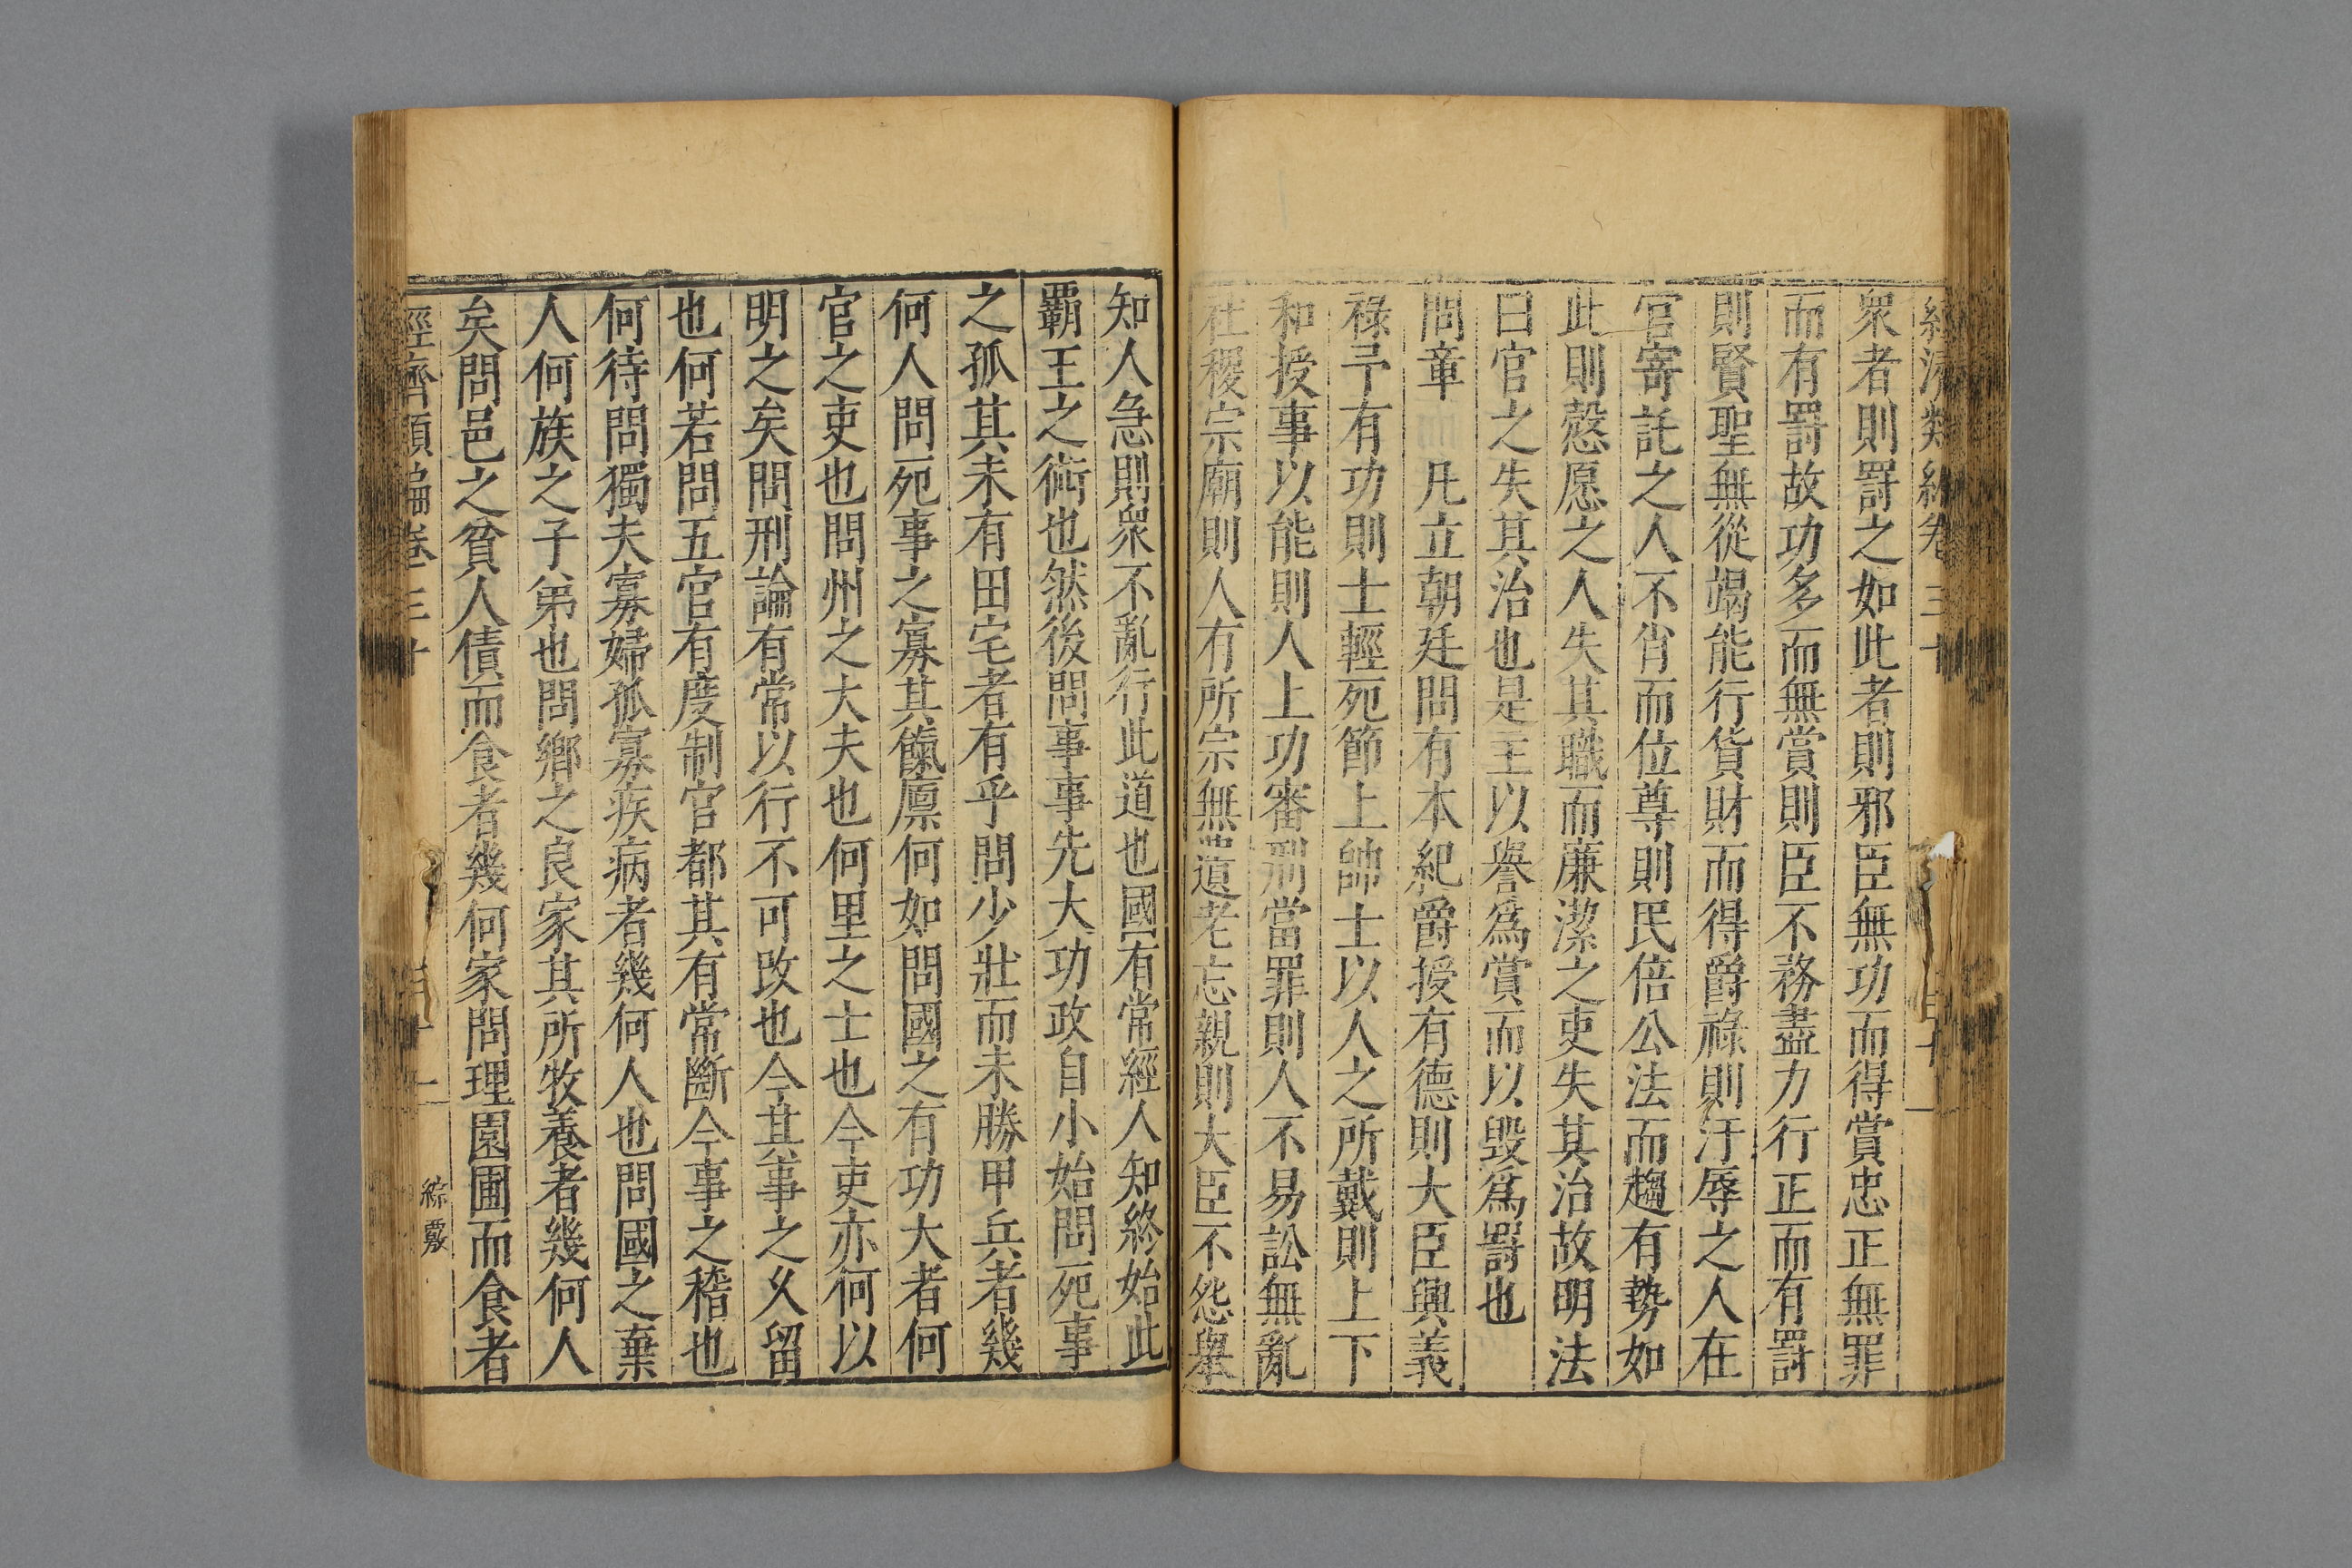 經濟類編卷三十
衆者則罰之如此者則邪臣無功而得賞忠正無罪
而有罰故功多而無賞則臣不務盡力行正而有罰
則賢聖無從竭能行貨財而得爵祿則汙辱之人在
官寄託之人不肖而位尊則民倍公法而趨有勢如
此則慤愿之人失其職而廉潔之吏失其治故明法
曰官之失其治也是主以譽爲賞而以毀爲罰也
問章 凡立朝廷問有本紀爵授有德則大臣興義
祿予有功則士輕死節上帥士以人之所戴則上下
和授事以能則人上功審刑當罪則人不易訟無亂
社稷宗廟則人有所宗無遺老忘親則大臣不怨舉
知人急則衆不亂行此道也國有常經人知終始此
霸王之術也然後問事事先大功政自小始問死事
之孤其未有田宅者有乎問少壯而未勝甲兵者幾
何人問死事之寡其餼廩何如問國之有功大者何
官之吏也問州之大夫也何里之士也今吏亦何以
明之矣問刑論有常以行不可改也今其事之久留
也何若問五官有度制官都其有常斷今事之稽也
何待問獨夫寡婦孤寡疾病者幾何人也問國之棄
人何族之子弟也問鄉之良家其所牧養者幾何人
矣問邑之貧人債而食者幾何家問理園圃而食者
經濟類編卷三十 綜覈